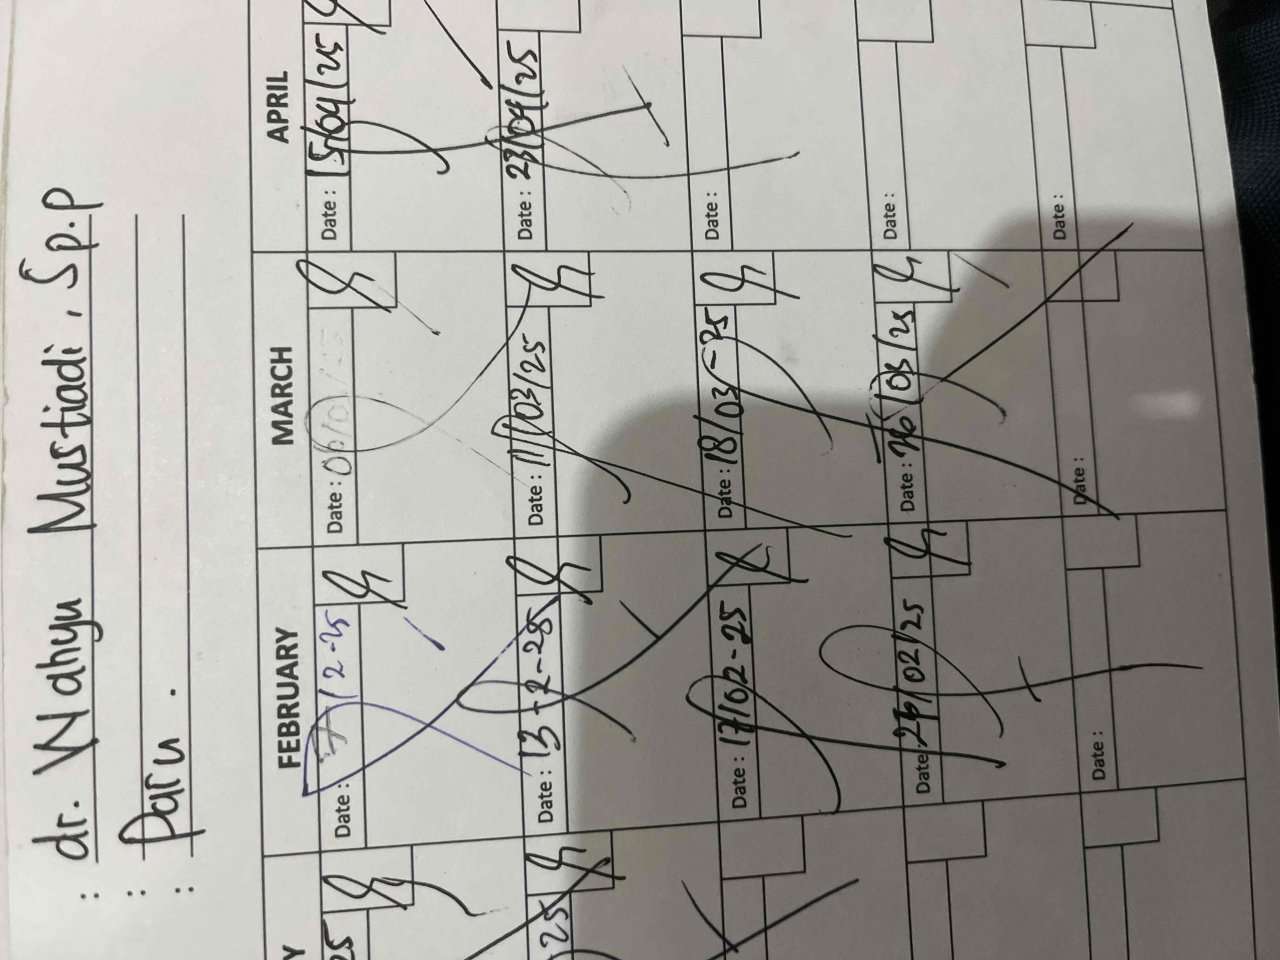 : dr. Wahyu Mustiadi, Sp.P
: Paru.
:
Y FEBRUARY MARCH APRIL
25 Date: 7/2-25 Date: Date: 15/04/25
25 Date: 13-2-25 Date: 11/03/25 Date: 23/04/25
Date: 17/02-25 Date: 18/03-25 Date:
Date: 02/25 Date: /03/25 Date:
Date: Date: Date: